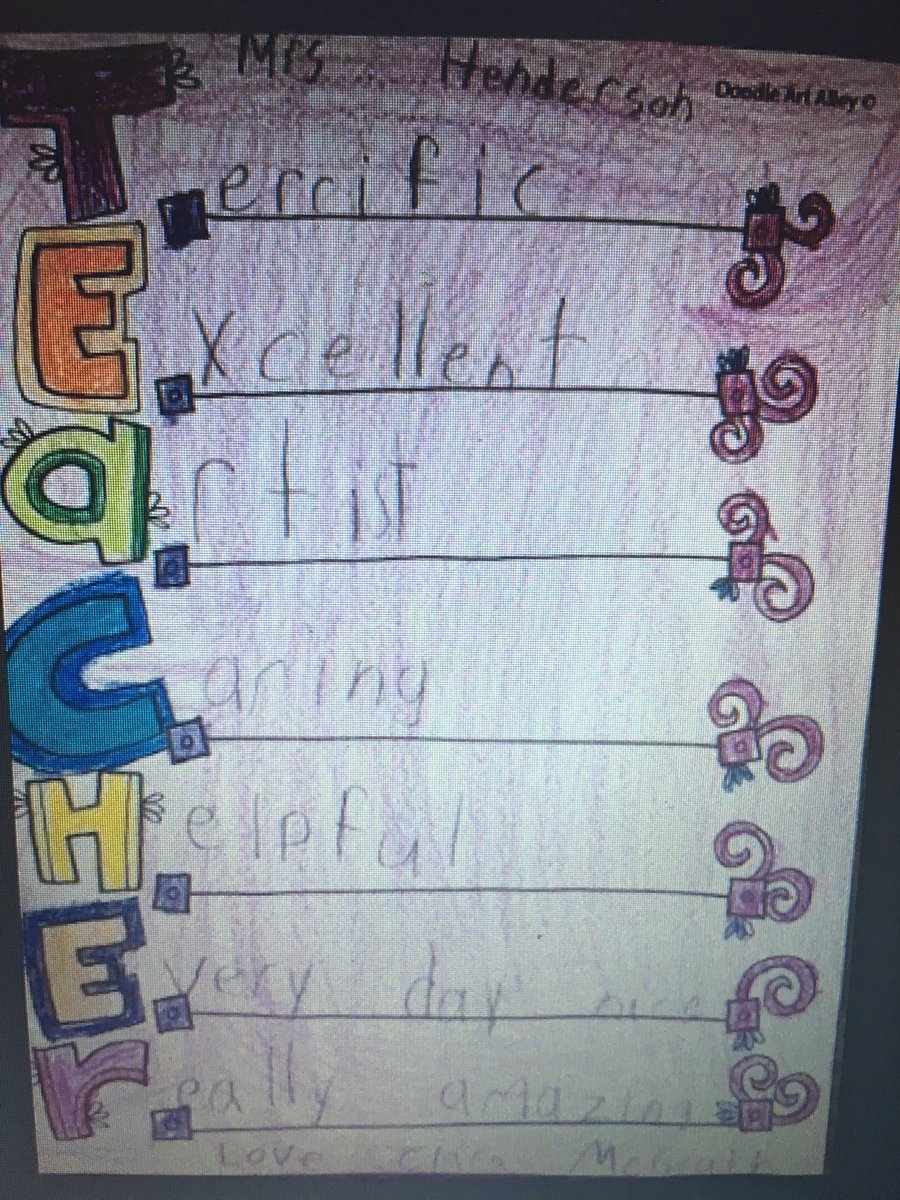 Mrs Henderson
Doodle Art Alley ©
Terrific
Excellent
artist
Caring
Helpful
Every day nice
really amazing
Love